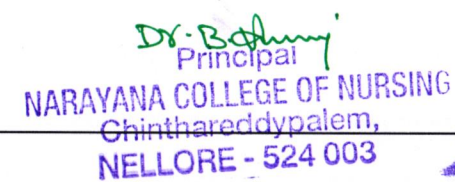 Dr. B.
Principal
NARAYANA COLLEGE OF NURSING
Chinthareddypalem,
NELLORE - 524 003